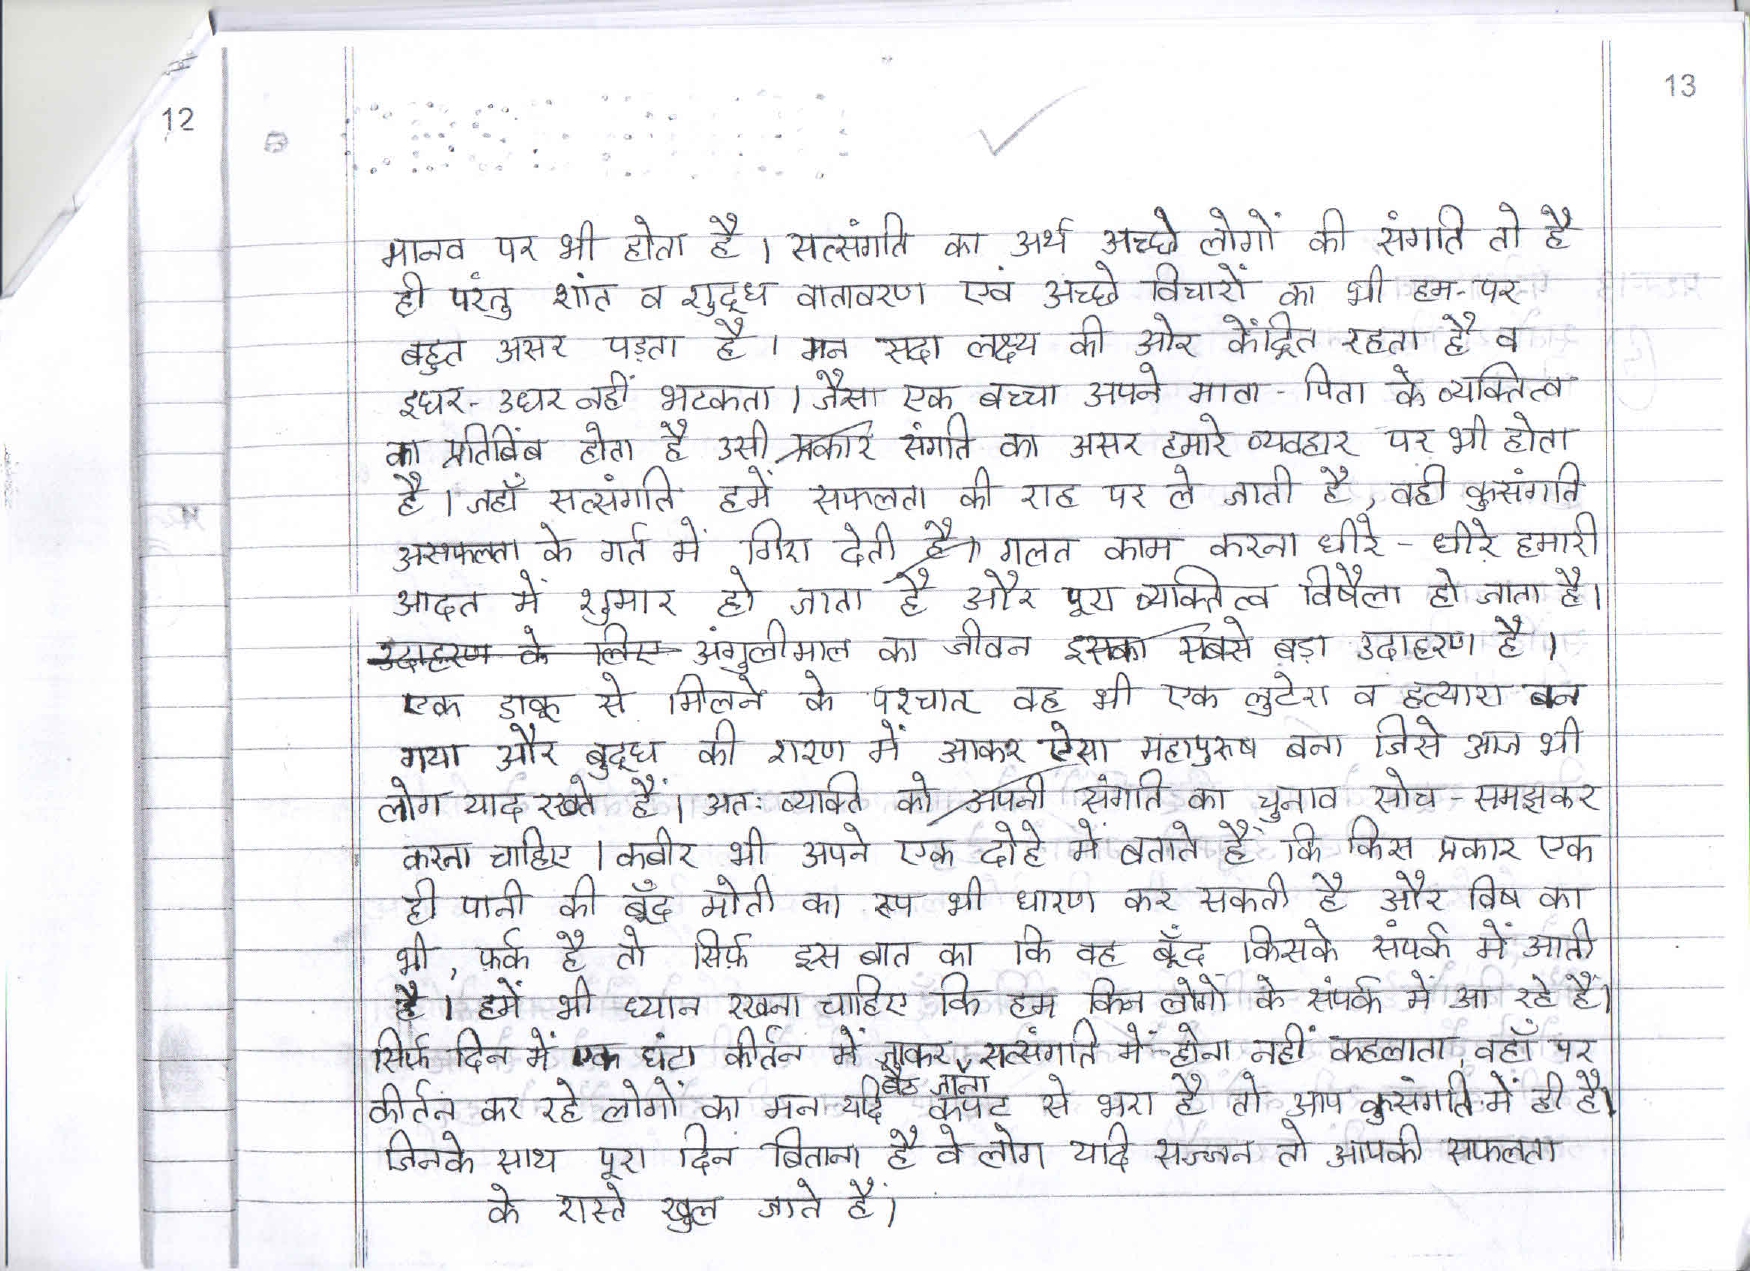 12
13
मानव पर भी होता है। सत्संगति का अर्थ अच्छे लोगों की संगति तो है
ही परंतु शांत व शुद्ध वातावरण एवं अच्छे विचारों का भी हम पर
बहुत असर पड़ता है। मन सदा लक्ष्य की ओर केंद्रित रहता है व
इधर-उधर नहीं भटकता। जैसा एक बच्चा अपने माता-पिता के व्यक्तित्व
का प्रतिबिंब होता है उसी प्रकार संगति का असर हमारे व्यवहार पर भी होता
है। जहाँ सत्संगति हमें सफलता की राह पर ले जाती है, वही कुसंगति
असफलता के गर्त में गिरा देती है। गलत काम करना धीरे-धीरे हमारी
आदत में शुमार हो जाता है और पूरा व्यक्तित्व विषैला हो जाता है।
उदाहरण के लिए अंगुलीमाल का जीवन इसका सबसे बड़ा उदाहरण है।
एक डाकू से मिलने के पश्चात वह भी एक लुटेरा व हत्यारा बन
गया और बुद्ध की शरण में आकर ऐसा महापुरुष बना जिसे आज भी
लोग याद रखते हैं। अतः व्यक्ति को अपनी संगति का चुनाव सोच समझकर
करना चाहिए। कबीर भी अपने एक दोहे में बताते हैं कि किस प्रकार एक
ही पानी की बूँद मोती का रूप भी धारण कर सकती है और विष का
भी, फ़र्क है तो सिर्फ़ इस बात का कि वह बूँद किसके संपर्क में आती
है। हमें भी ध्यान रखना चाहिए कि हम किन लोगों के संपर्क में आ रहे हैं।
सिर्फ दिन में एक घंटा कीर्तन में जाकर सत्संगति में होना नहीं कहलाता, वहाँ पर
बैठ जाना
कीर्तन कर रहे लोगों का मन यदि कपट से भरा है तो आप कुसंगति में ही है।
जिनके साथ पूरा दिन बिताना है वे लोग यदि सज्जन तो आपकी सफलता
के रास्ते खुल जाते हैं।